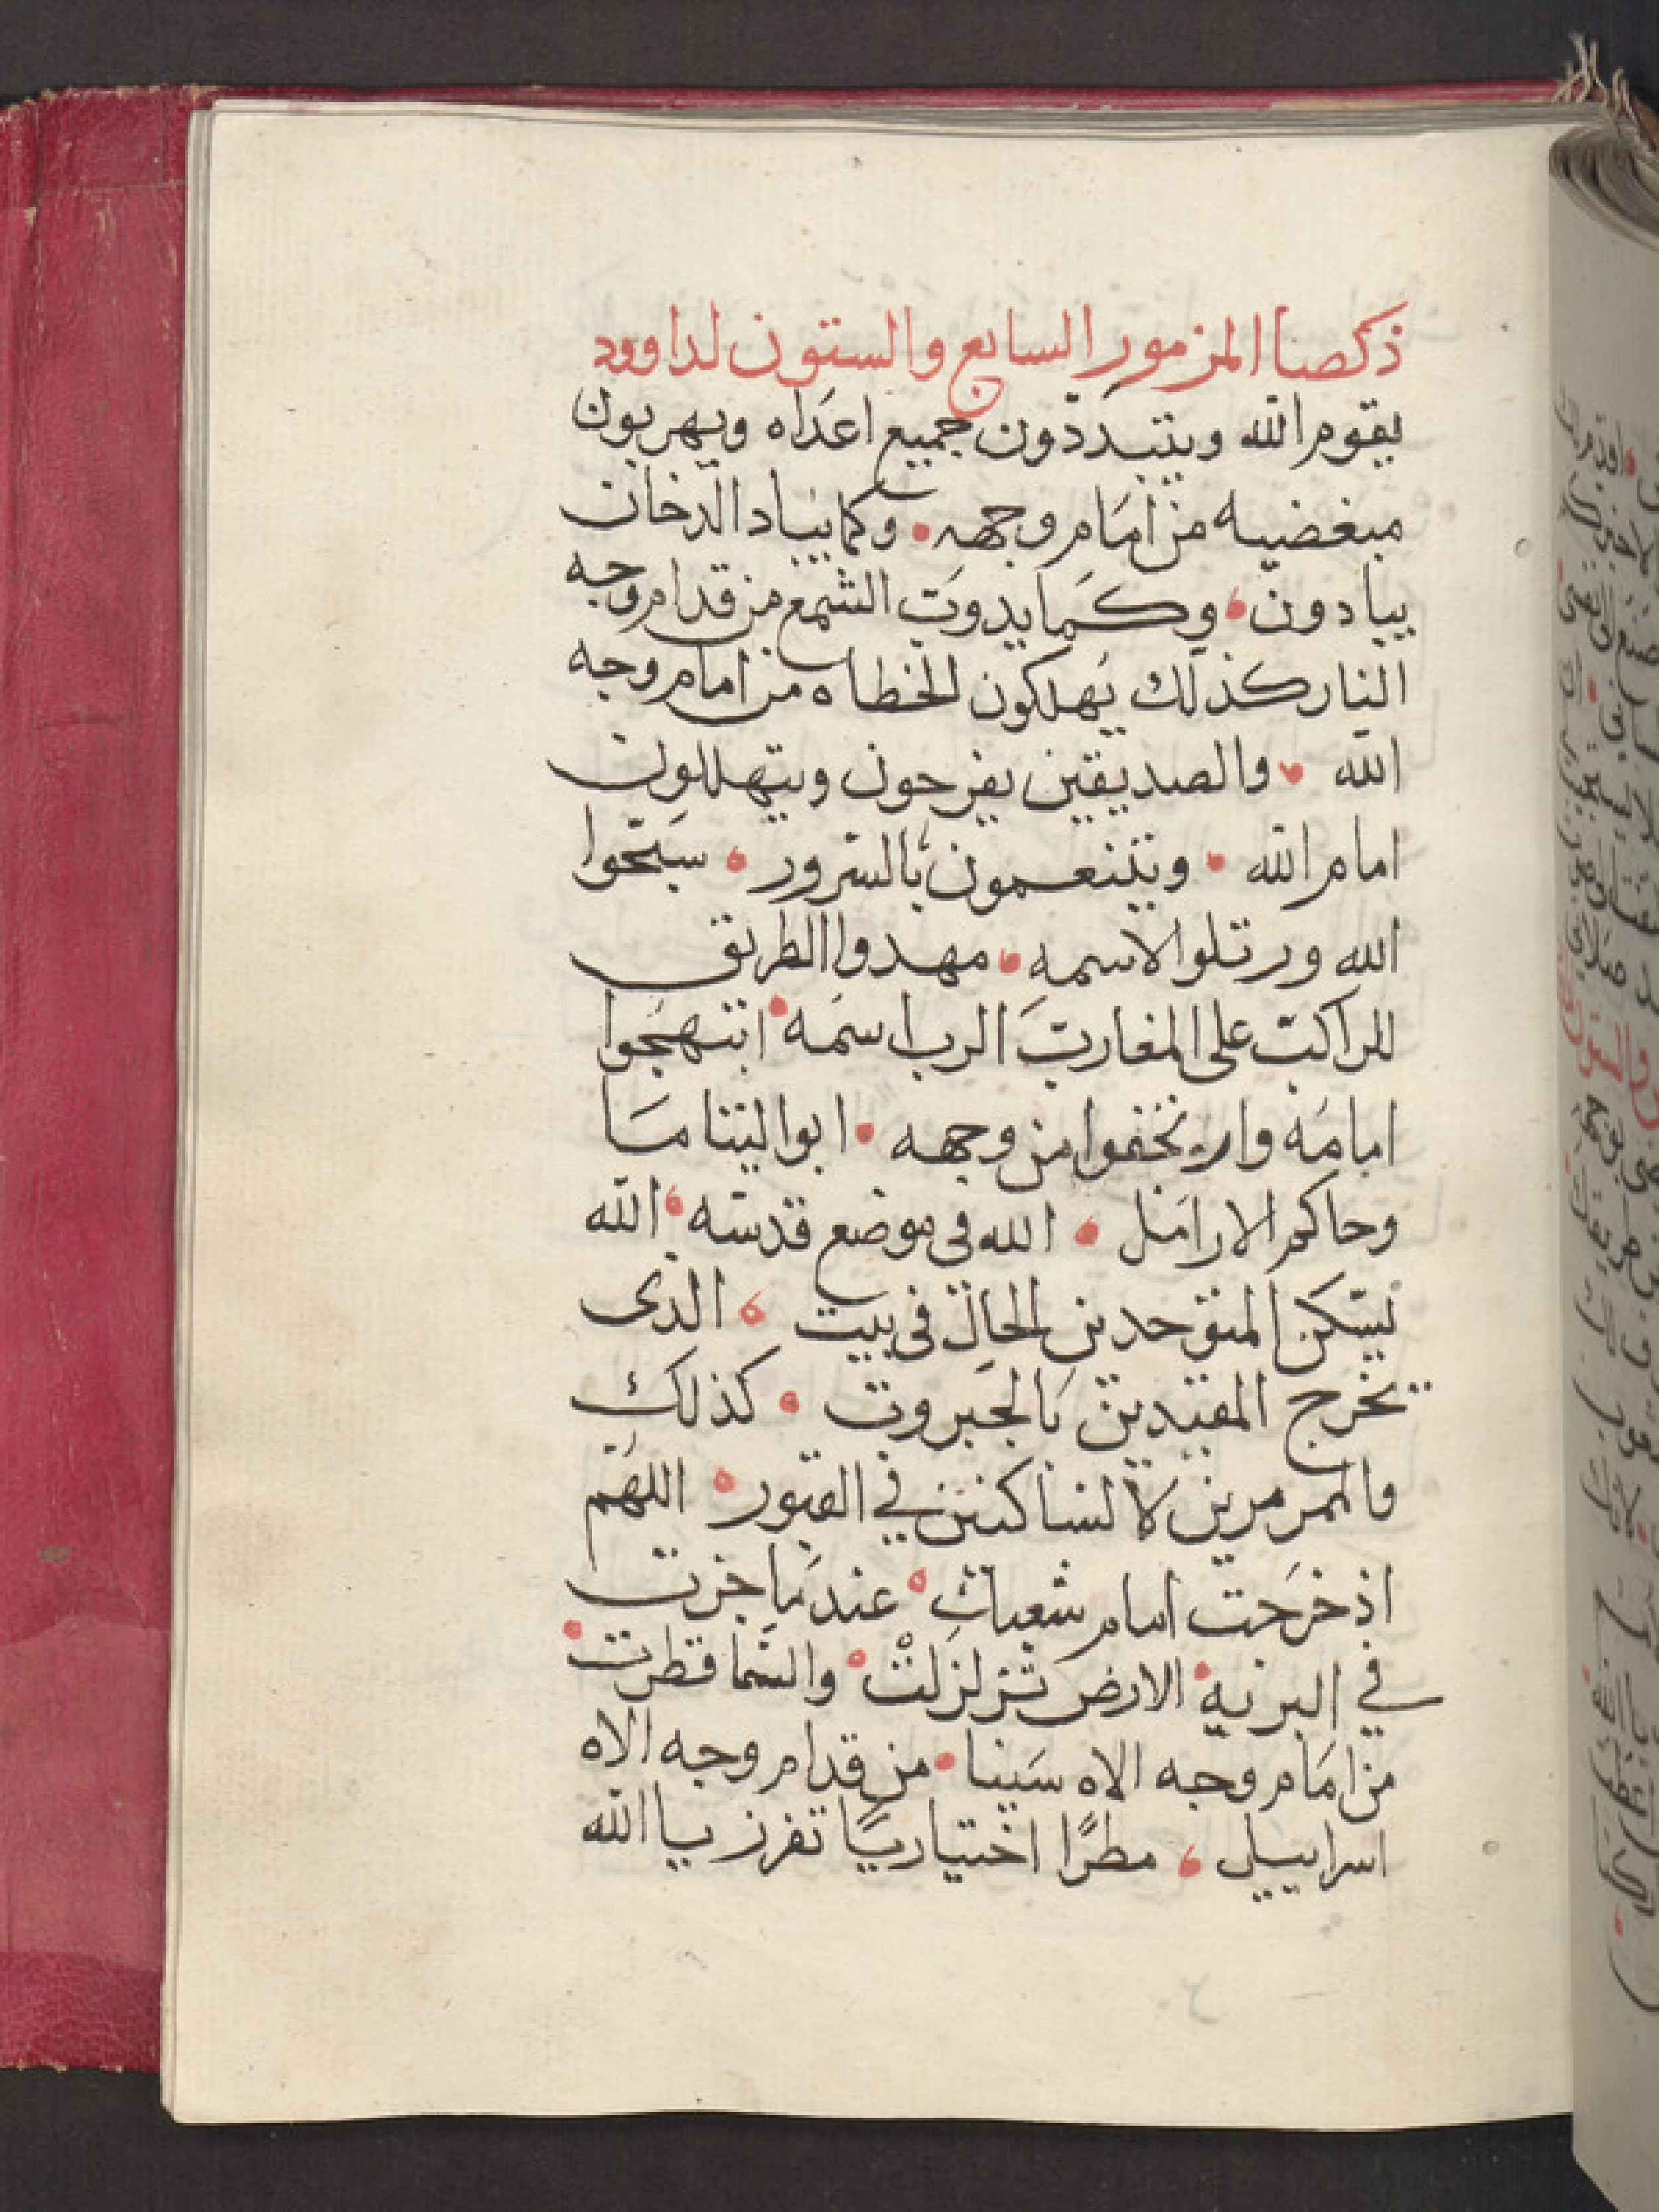 ذكصا المزمور السابع والستون لداوود
يقوم الله ويتبددون جميع اعداه ويهربون
مبغضيه من امام وجهه • وكما يباد الدخان
يبادون • وكما يدوب الشمع من قدام وجه
النار كذلك يهلكون الخطاه من امام وجه
الله • والصديقين يفرحون ويتهللون
امام الله • ويتنعمون بالسرور • سبحوا
الله ورتلوا لاسمه • مهدوا الطريق
للراكب على المغارب الرب اسمه • ابتهجوا
امامه وار تخفوا من وجهه • ابو اليتاما
وحاكم الارامل • الله في موضع قدسه • الله
يسكن المتوحدين الحال في بيت • الدى
تخرج المقيدين بالجبروت • كذلك
والمرمرين لالساكنين في القبور • اللهم
اذ خرجت امام شعبك • عندما جزت
في البريه • الارض تزلزلت • والسما قطرت •
من امام وجه الاه سينا • من قدام وجه الاه
اسراييل • مطرًا اختياريًا تفرز يا الله